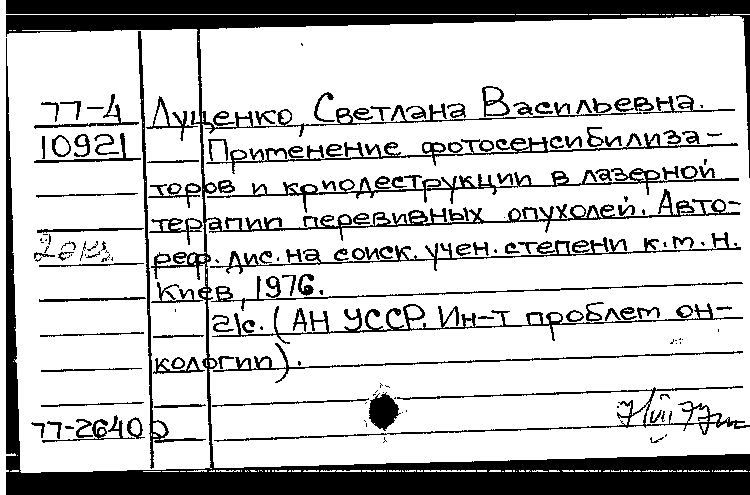 77-4 Луценко, Светлана Васильевна.
10921 Применение фотосенсибилиза-
торов и криодеструкции в лазерной
терапии перевивных опухолей. Авто-
2 экз реф. дис. на соиск. учен. степени к.м.н.
Киев, 1976.
21с. (АН УССР. Ин-т проблем он-
кологии).
77-2640